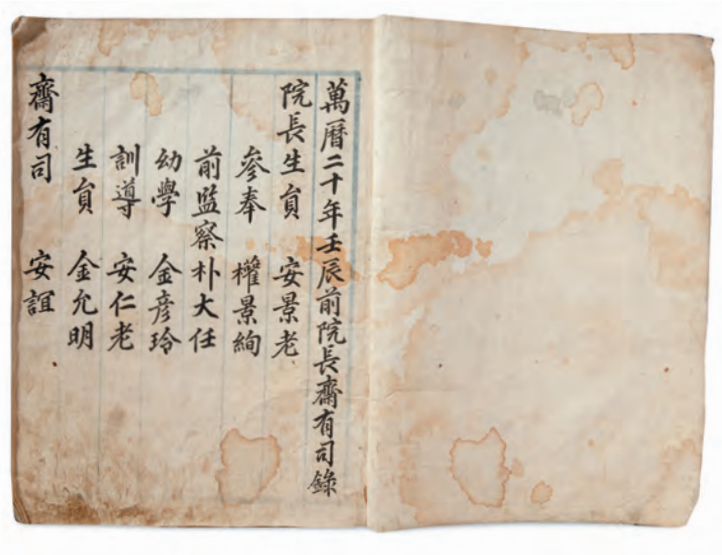 萬曆二十年壬辰前院長齋有司錄
院長生員 安景老
參奉 權景絢
前監察朴大任
幼學 金彦玲
訓導 安仁老
生員 金允明
齋有司 安誼